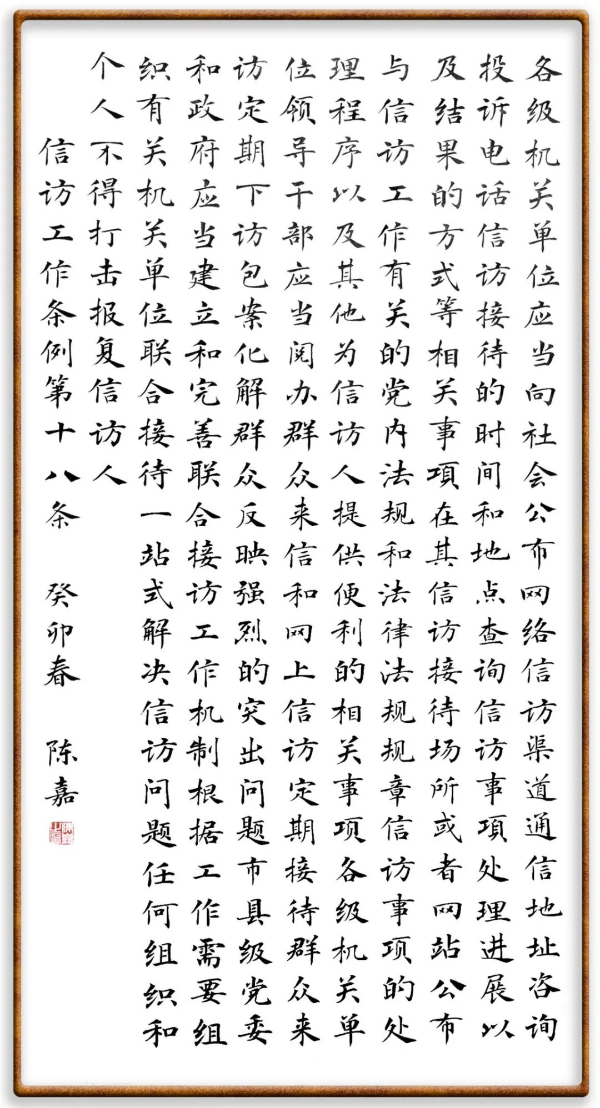 各级机关单位应当向社会公布网络信访渠道通信地址咨询
投诉电话信访接待的时间和地点查询信访事项处理进展以
及结果的方式等相关事项在其信访接待场所或者网站公布
与信访工作有关的党内法规和法律法规规章信访事项的处
理程序以及其他为信访人提供便利的相关事项各级机关单
位领导干部应当阅办群众来信和网上信访定期接待群众来
访定期下访包案化解群众反映强烈的突出问题市县级党委
和政府应当建立和完善联合接访工作机制根据工作需要组
织有关机关单位联合接待一站式解决信访问题任何组织和
个人不得打击报复信访人
信访工作条例第十八条 癸卯春 陈嘉